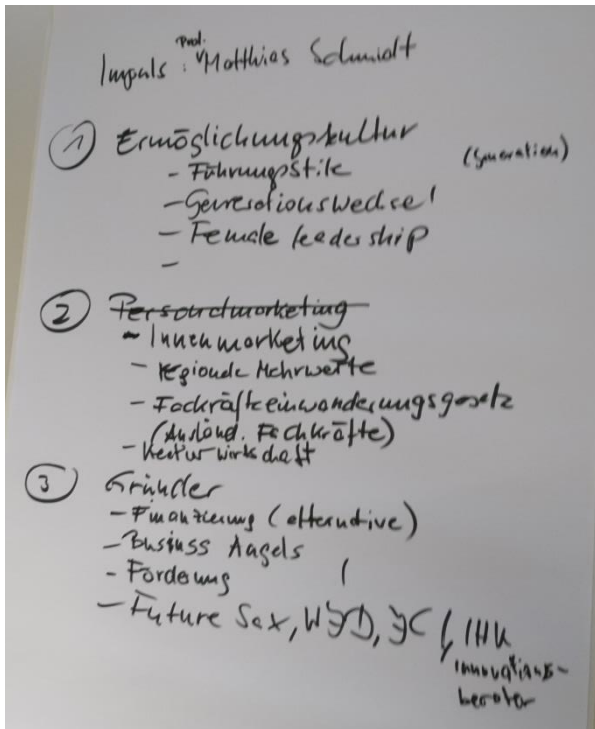 Impuls : Prof. Matthias Schmidt
① Ermöglichungskultur
(Generation)
- Führungsstile
- Generationswechsel
- Female leadership
-
② Personalmarketing
- Innenmarketing
- regionale Mehrwerte
- Fackräfteeinwanderungsgesetz
(Ausländ. Fachkräfte)
③ Gründer
- Finanzierung (alternative)
- Business Angels
- Förderung
- Future Sax, IHK
Innovations-
berater